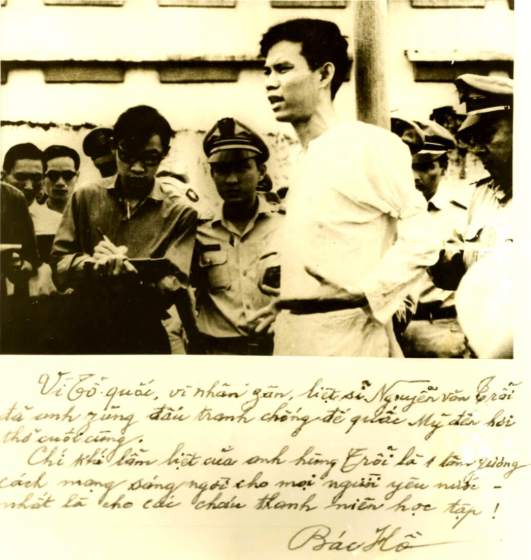 Vì Tổ quốc, vì nhân zân, liệt sĩ Nguyễn văn Trỗi
đã anh zũng đấu tranh chống đế quốc Mỹ đến hơi
thở cuối cùng.
Chí khí lẫm liệt của anh hùng Trỗi là 1 tấm gương
cách mạng sáng ngời cho mọi người yêu nước -
nhất là cho các cháu thanh niên học tập!
Bác Hồ